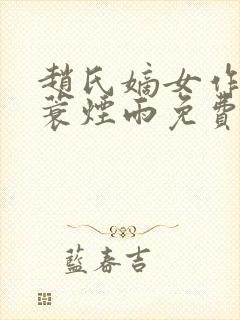 趙氏嫡女作
蓑煙雨免費
藍春吉